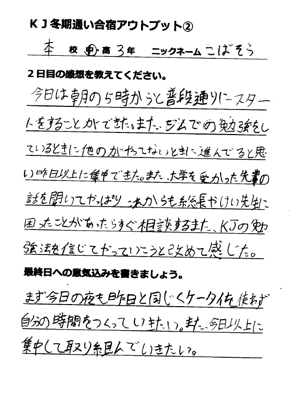 KJ冬期通い合宿アウトプット②
本 校 中・高 3年 ニックネーム こばそら
2日目の感想を教えてください。
今日は朝の5時から普段通りにスター
トをすることができた。また、ジムでの勉強をし
ているときに他のがやってないときに進んでると思
い昨日以上に集中できた。また、大学を受かった先輩の
話を聞いてやっぱりこれからも総長やけい先生に
困ったことがあったらすぐ相談する。また、KJの勉
強法を信じてやっていこうと改めて感じた。
最終日への意気込みを書きましょう。
まず今日の夜も昨日と同じくケータイを使わず
自分の時間をつくっていきたい。また、今日以上に
集中して取り組んでいきたい。